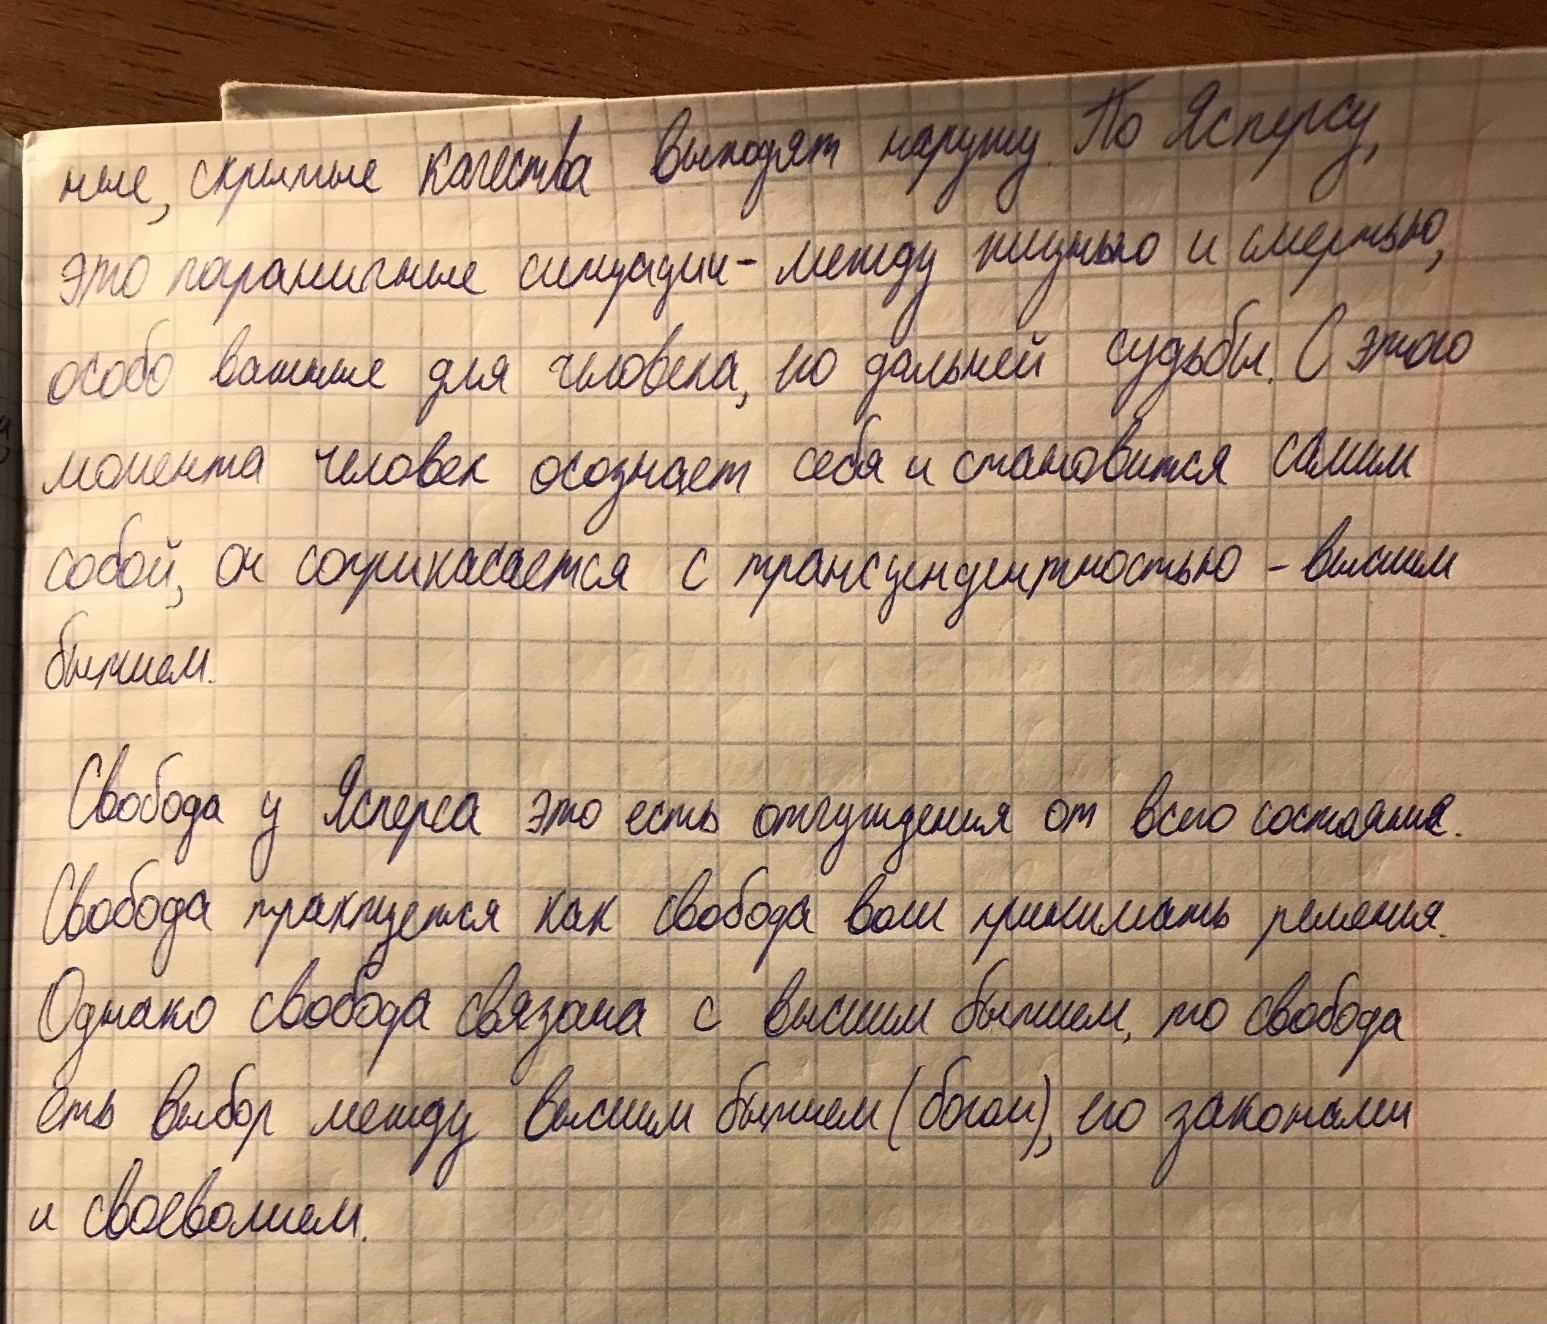 ные, скрытые качества выходят наружу. По Ясперсу,
это пораничные ситуации - между жизнью и смертью,
особо важные для человека, его дальней судьбы. С этого
момента человек осознает себя и становится самим
собой, он соприкасается с трансцендентностью - высшим
бытием.
Свобода у Ясперса это есть отчуждения от всего состояния.
Свобода трактуется как свобода воли принимать решения.
Однако свобода связана с высшим бытием, то свобода
есть выбор между высшим бытием (богом), его законами
и своеволием.